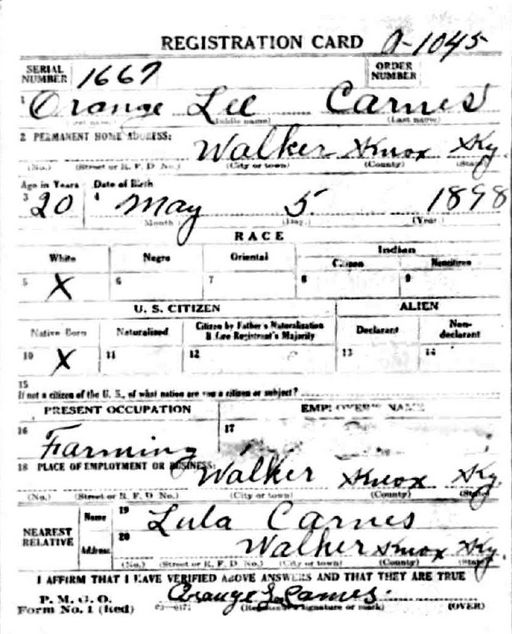 REGISTRATION CARD A-1045
SERIAL NUMBER 1667 ORDER NUMBER
1 Orange Lee Carnes
(Middle name) (Last name)
2 PERMANENT HOME ADDRESS:
Walker Knox Ky.
(No.) (Street or R. F. D. No.) (City or town) (County) (State)
Age in Years Date of Birth
3 20 4 May 5 1898
(Month) (Day) (Year)
RACE
White Negro Oriental Indian
Citizen Noncitizen
5 X 6 7 8 9
U. S. CITIZEN ALIEN
Native Born Naturalized Citizen by Father's Naturalization Before Registrant's Majority Declarant Non-declarant
10 X 11 12 13 14
15
If not a citizen of the U. S., of what nation are you a citizen or subject?
PRESENT OCCUPATION EMPLOYER'S NAME
16 Farming 17
18 PLACE OF EMPLOYMENT OR BUSINESS:
Walker Knox Ky.
(No.) (Street or R. F. D. No.) (City or town) (County) (State)
NEAREST RELATIVE Name 19 Lula Carnes
Address 20 Walker Knox Ky.
(No.) (Street or R. F. D. No.) (City or town) (County) (State)
I AFFIRM THAT I HAVE VERIFIED ABOVE ANSWERS AND THAT THEY ARE TRUE
P. M. G. O.
Form No. 1 (Red) Orange L Carnes
(Registrant's signature or mark) (OVER)